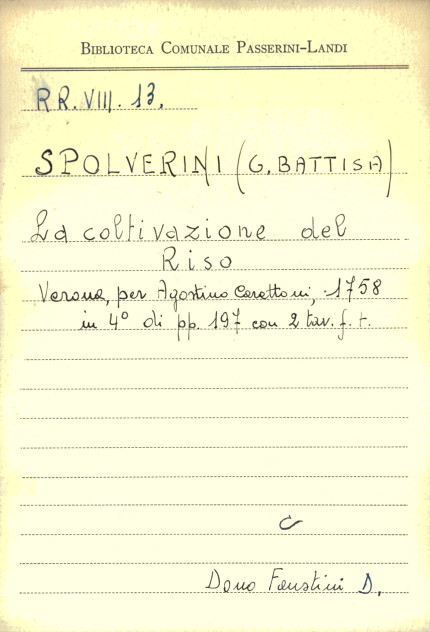 BIBLIOTECA COMUNALE PASSERINI-LANDI
RR. VIII. 13.
SPOLVERINI (G. BATTISA)
La coltivazione del
Riso
Verona, per Agostino Carattoni, 1758
in 4° di pp. 197 con 2 tav. f. t.
C
Dono Faustini D.